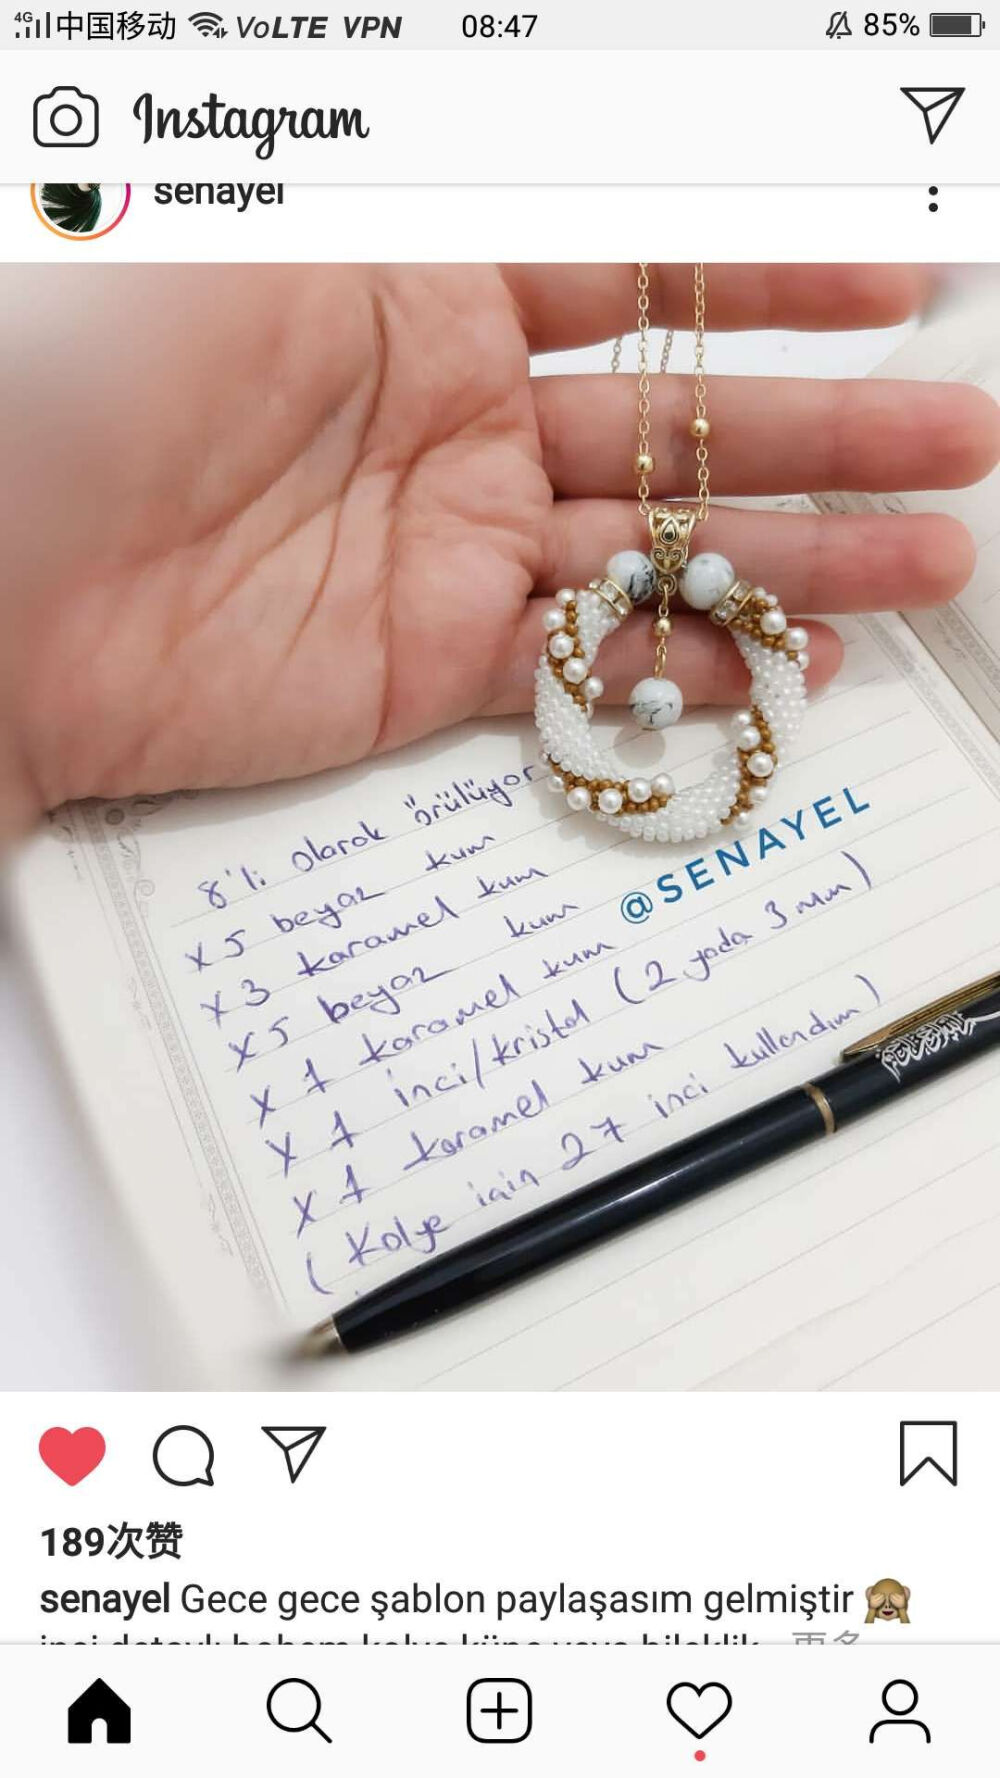 4G 中国移动 VoLTE VPN 08:47 85%
Instagram
senayel
8'li olarak örülüyor
x 5 beyaz kum
x 3 karamel kum
x 5 beyaz kum
x 1 karamel kum
x 1 inci/kristal (2 yada 3 mm)
x 1 karamel kum
( Kolye için 27 inci kullandım )
@SENAYEL
189次赞
senayel Gece gece şablon paylaşasım gelmiştir